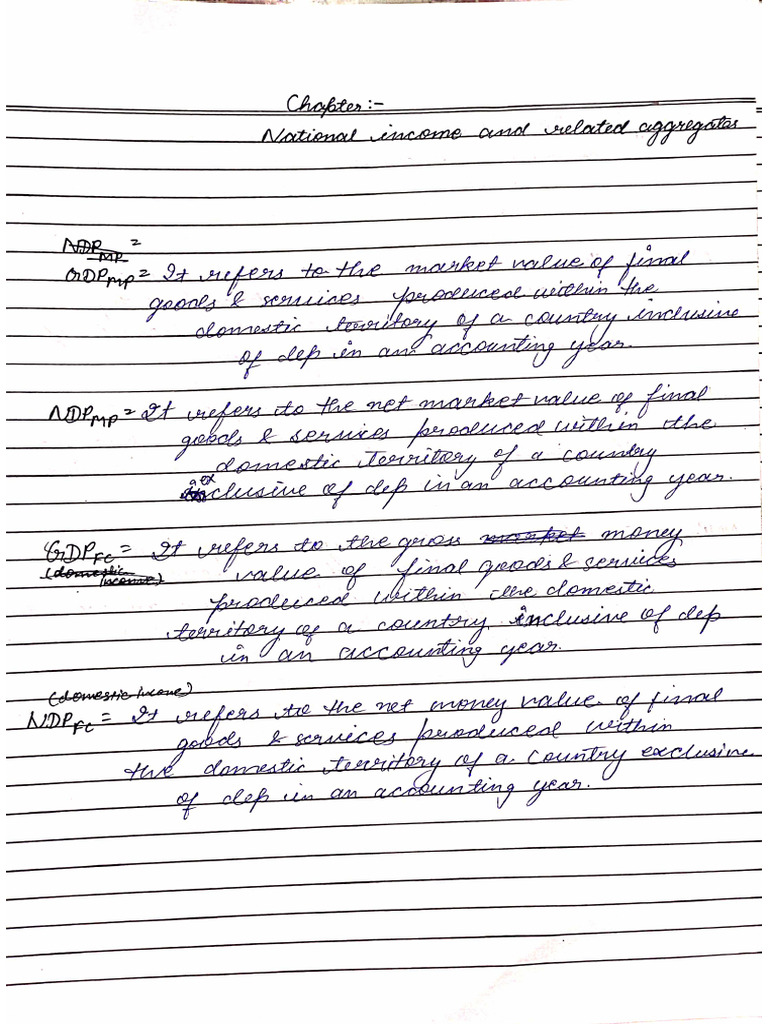 Chapter:-
National income and related aggregates
NDP MP =
GDP MP = It refers to the market value of final
goods & services produced within the
domestic territory of a country inclusive
of dep in an accounting year.
NDP MP = It refers to the net market value of final
goods & services produced within the
domestic territory of a country
exclusive of dep in an accounting year.
GDP FC = It refers to the gross market money
(domestic income) value of final goods & services
produced within the domestic
territory of a country inclusive of dep
in an accounting year.
(domestic income)
NDP FC = It refers to the net money value of final
goods & services produced within
the domestic territory of a country exclusive
of dep in an accounting year.